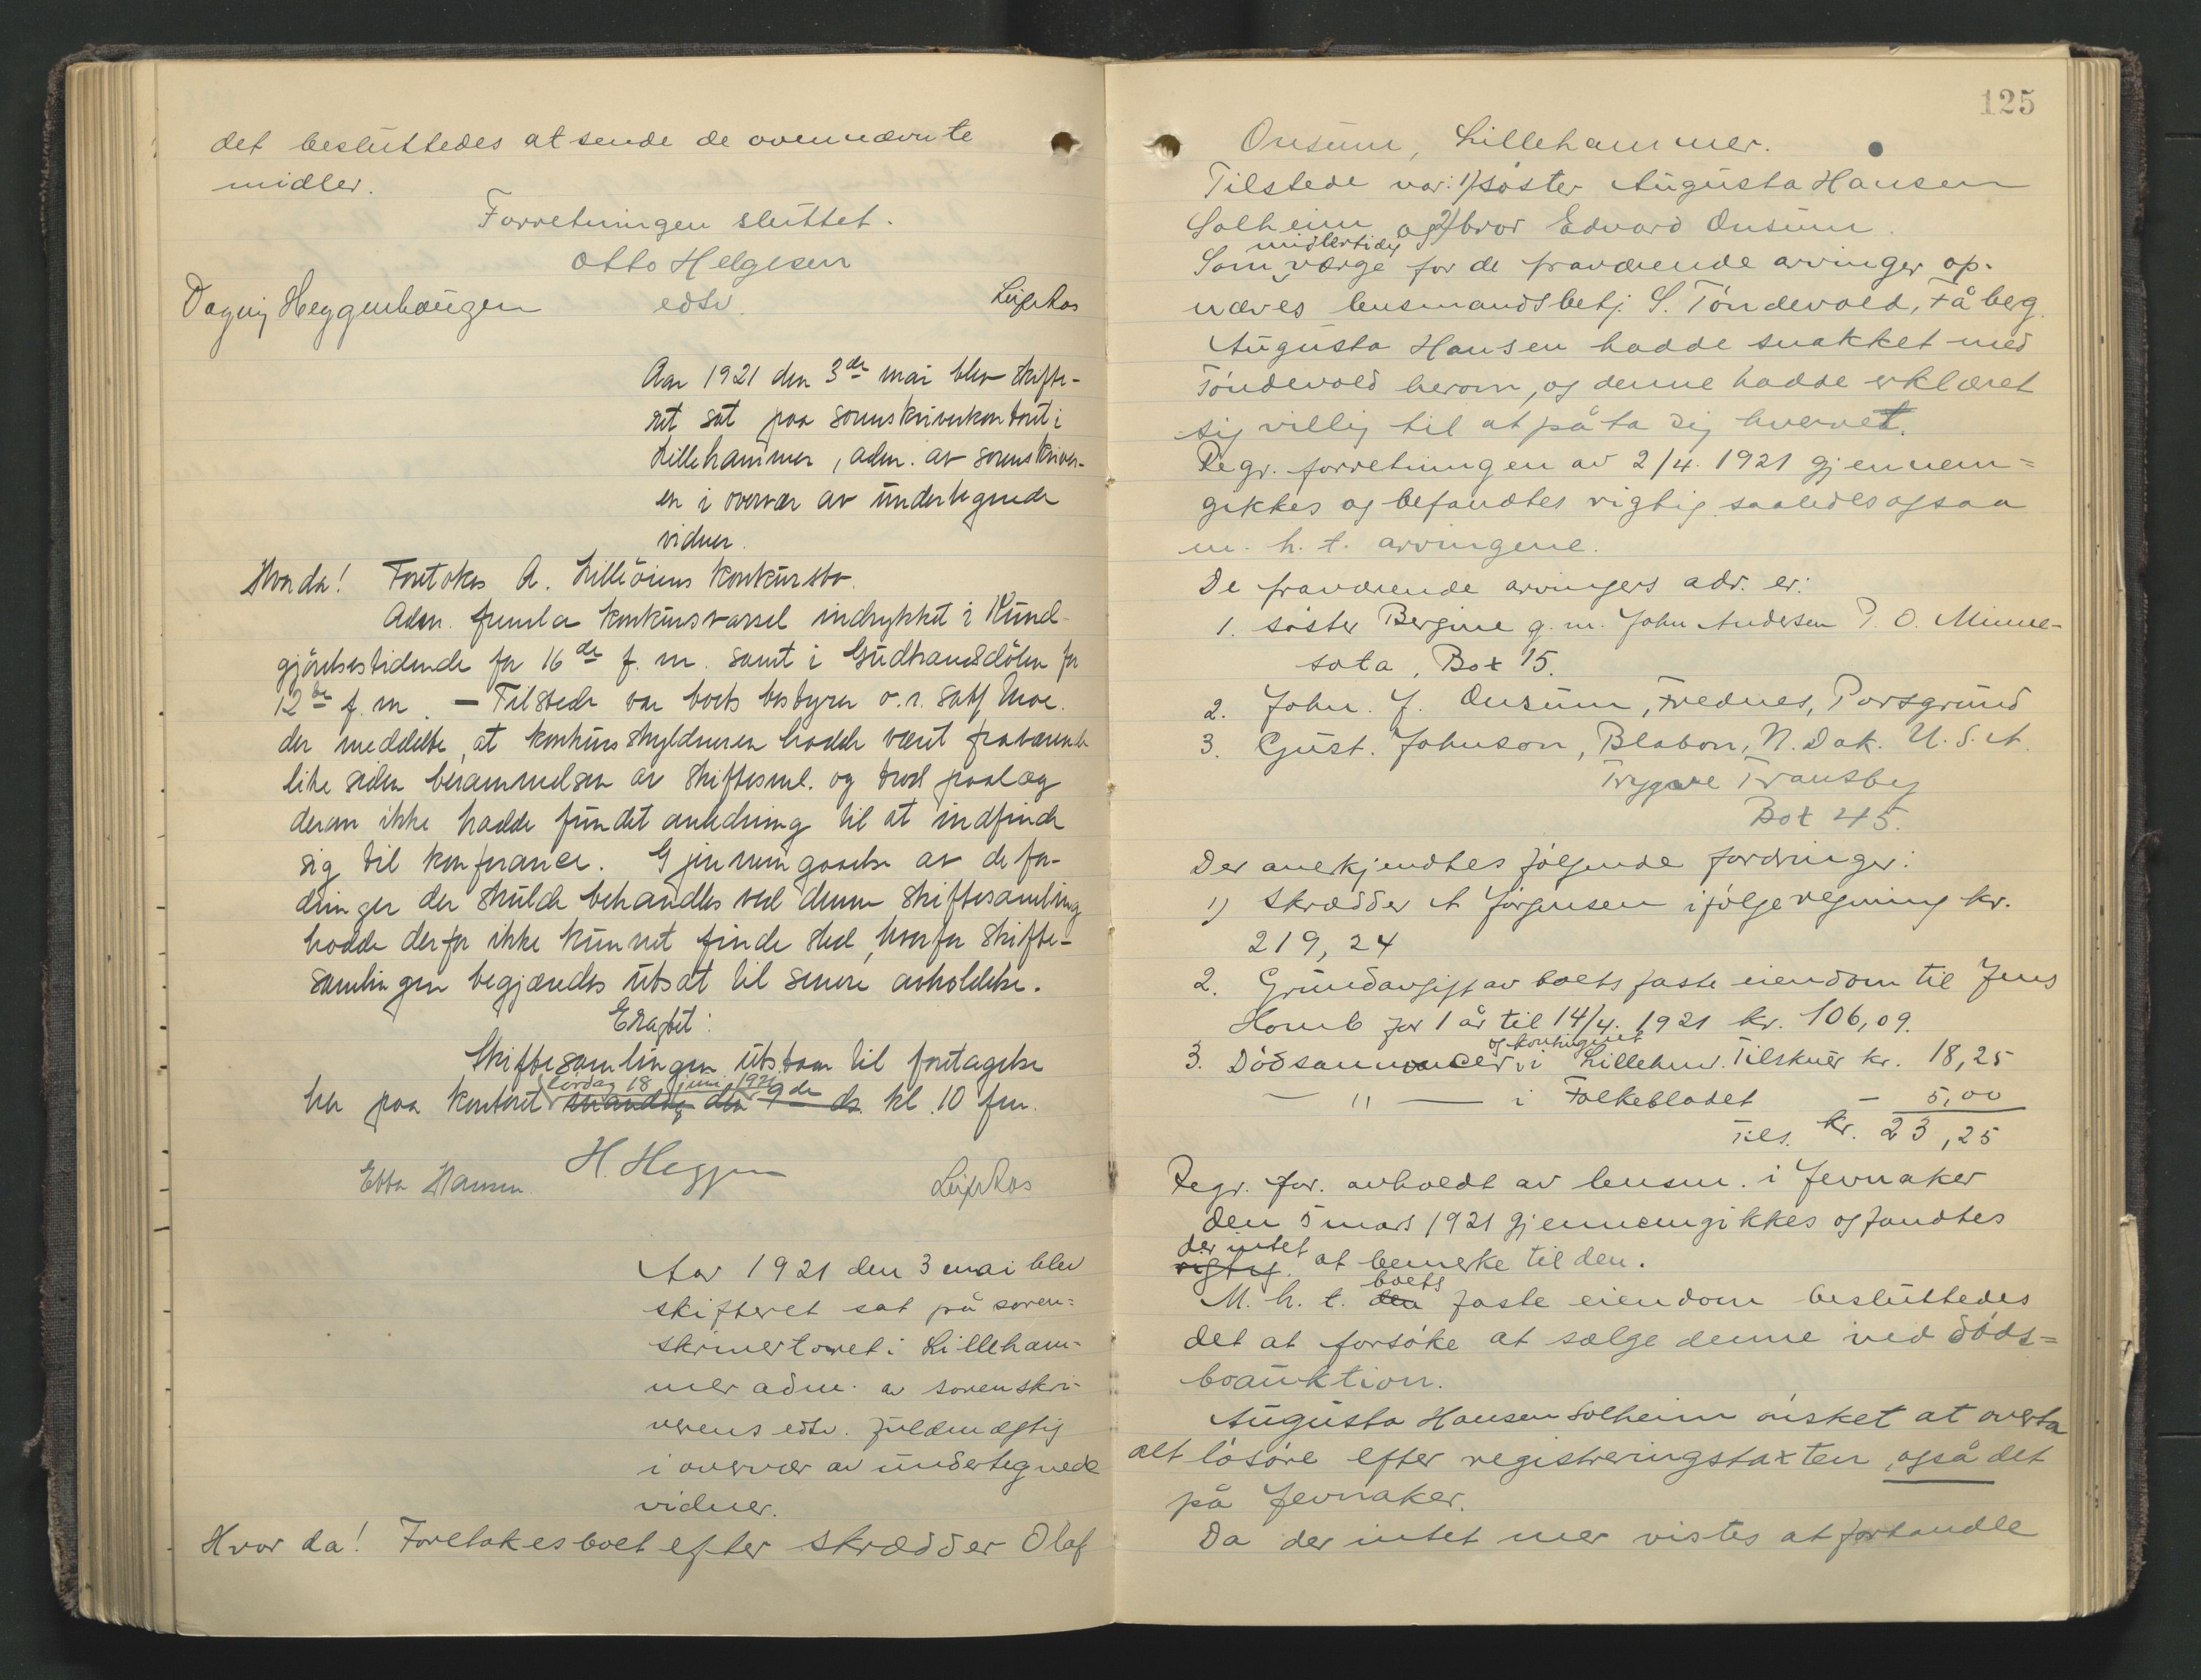 det besluttedes at sende de ovennævnte
midler.
Forretningen sluttet.
Otto Helgesen
Dagny Heggenhaugen edsv. Leif Aas
Aar 1921 den 3de mai blev skifte-
ret sat paa sorenskriverkontoret i
Lillehammer, adm. av sorenskriver-
en i overvær av undertegnede
vidner.
Hvor da! Foretokes A. Lilleöiens konkursbo.
Adm. fremla konkursvarsel indrykket i Kund-
gjörelsestidende for 16de f. m. samt i Gudbrandsdölen for
12te f. m. — Tilstede var boets bestyrer o.r. sakf. Moe.
der meddelte, at konkursskyldneren hadde været fraværende
like siden berammelsen av skiftesaml. og trods paalæg
derom ikke hadde fundet anledning til at indfinde
sig til konferance. Gjennemgaaelse av de for-
dringer der skulde behandles ved denne skiftesamling
hadde derfor ikke kunnet finde sted, hvorfor skifte-
samlingen begjæredes utsat til senere avholdelse.
Eragtet:
Skiftesamlingen utstaar til foretagelse
lördag 18 juni 1921
her paa kontoret mandag den 9de ds. kl. 10 fm.
H. Heggen
Ebba Hansen Leif Aas
Aar 1921 den 3 mai blev
skifteret sat på soren=
skriverkoret i Lilleham=
mer adm. av sorenskri-
verens edsv. fuldmægtig
i overvær av undertegnede
vidner.
Hvor da! Foretokes boet efter skrædder Olaf
125
Onsum, Lillehammer.
Tilstede var: 1) söster Augusta Hansen
Solheim og 2) bror Edvard Onsum.
midlertidig
Som værge for de fraværende arvinger op-
næves lensmandsbetj. S. Töndevold, Fåberg.
Augusta Hansen hadde snakket med
Töndevold herom, og denne hadde erklæret
sig villig til at påta sig hvervet.
Regr. forretningen av 2/4. 1921 gjennem=
gikkes og befandtes rigtig saaledes ogsaa
m. h. t. arvingene.
De fraværende arvingers adr. er:
1. söster Bergine g. m. John Andersen P. O. Minne-
sota, Box 15.
2. John. J. Onsum, Frednes, Porsgrund
3. Gust. Johnson, Blabon, N. Dak. U.S.A.
Trygve Transby
Box 45.
Der anerkjendtes fölgende fordringer:
1) Skrædder A Jörgensen ifölge regning kr.
219,24
2. Grundavgift av boets faste eiendom til Jens
Homb for 1 år til 14/4. 1921 kr. 106,09.
og kontingent
3. Dödsannoncer i Lillehm. Tilskuer kr. 18,25
— " — i Folkebladet – 5,00
Tils. kr. 23,25
Regr. for. avholdt av lensm. i Jevnaker
den 5 mars 1921 gjennemgikkes og fandtes
der intet
rigtig at bemerke til den.
boets
M. h. t. den faste eiendom besluttedes
det at forsöke at sælge denne ved döds=
boauktion.
Augusta Hansen Solheim önsket at overta
alt lösöre efter registreringstaxten, også det
på Jevnaker.
Da der intet mer vistes at forhandle